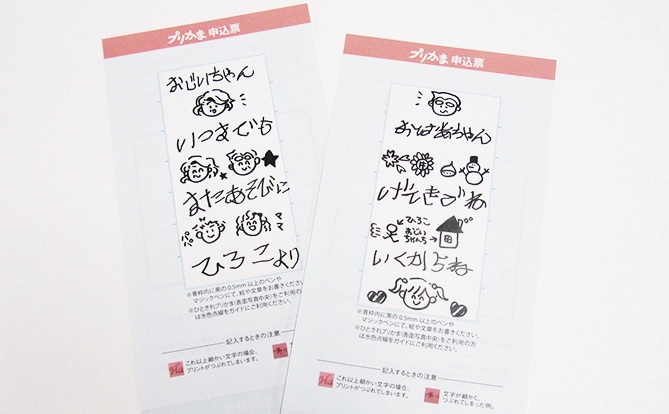 プリかま 申込票
おじいちゃん
いつまでも
またあそびに
パパ
ママ
ひろこより
※青枠内に黒の0.5mm以上のペンや
マジックペンにて、絵や文章をお書きください。
※ひときれプリかま(表面写真中央)をご利用の方
は水色点線をガイドにご利用ください。
記入するときの注意
これ以上細かい文字の場合、
プリントがつぶれてしまいます。
プリかま 申込票
おばあちゃん
げんきでね
ひろこ
おじいちゃんち
いくからね
※青枠内に黒の0.5mm以上のペンや
マジックペンにて、絵や文章をお書きください。
※ひときれプリかま(表面写真中央)をご利用の方
は水色点線をガイドにご利用ください。
記入するときの注意
これ以上細かい文字の場合、
プリントがつぶれてしまいます。
文字が細かく、
つぶれてしまった例。